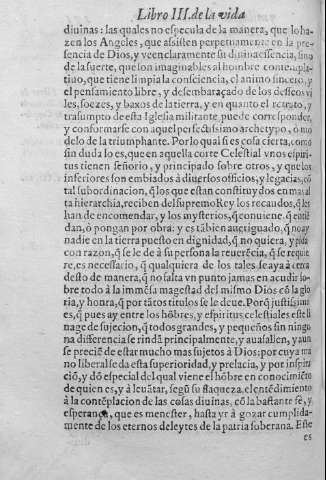 Libro III. de la vida
diuinas: las quales no especula de la manera, que lo ha-
zen los Angeles, que assisten perpetuamente en la pre-
sencia de Dios, y veen claramente su diuina essencia, sino
de la suerte, que son imaginables al hombre contemplá-
tiuo, que tiene limpia la consciencia, el animo sincero, y
el pensamiento libre, y desembaraçado de los desseos vi
les, soezes, y baxos de la tierra, y en quanto el retrato, y
trasumpto de esta Iglesia militante puede corresponder,
y conformarse con aquel perfectissimo archetypo, ó mo
delo de la triumphante. Por lo qual si es cosa cierta, como
sin duda lo es, que en aquella corte Celestial vnos espiri-
tus tienen señorio, y principado sobre otros, y que los
inferiores son embiados à diuersos officios, y legacias, cõ
tal subordinacion, q̃ los que estan constituydos en mas al
ta hierarchia, reciben del supremo Rey los recaudos, q̃ les
han de encomendar, y los mysterios, q̃ conuiene, q̃ entiē
dan, ó pongan por obra: y es tãbien aueriguado, q̃ no ay
nadie en la tierra puesto en dignidad, q̃ no quiera, y pida
con razon, q̃ se le de à su persona la reuerēcia, q̃ se requie
re, es necessario, q̃ qualquiera de los tales se aya à cerca
desto de manera, q̃ no falta vn punto jamas en acudir so-
bre todo à la immēsa magestad del mismo Dios cõ la glo
ria, y honra, q̃ por tãtos titulos se le deue. Porq̃ justissimo
es, q̃ pues ay entre los hõbres, y espiritus celestiales este li
nage de sujecion, q̃ todos grandes, y pequeños sin ningu
na differencia se rindã principalmente, y auasallen, y aun
se preciē de estar mucho mas sujetos à Dios: por cuya ma
no liberal se da esta superioridad, y prelacia, y por inspira
ciõ, y dõ especial del qual viene el hõbre en conocimiēto
de quien es, y à leuãtar, segũ su flaqueza, el entēdimiēto
à la contēplacion de las cosas diuinas, cõ la bastante fé, y
esperança, que es menester, hasta yr à gozar cumplida-
mente de los eternos deleytes de la patria soberana. Este
es